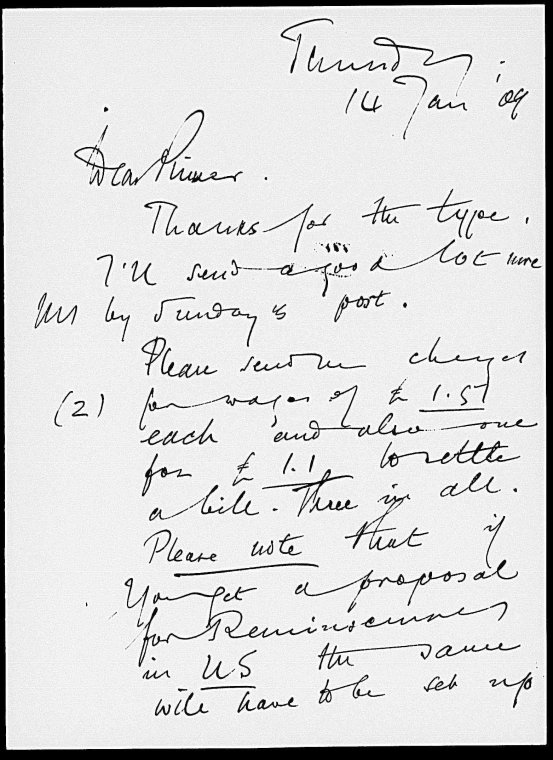 Thursday.
14 Jan '09
Dear Pinker.
Thanks for the type.
I'll send a good lot more
MS by Sunday's post.
Please send me cheques
(2) for wages of £ 1.5
each and also one
for £ 1.1 to settle
a bill. Three in all.
Please note that if
You get a proposal
for Reminiscences
in US the same
will have to be set up